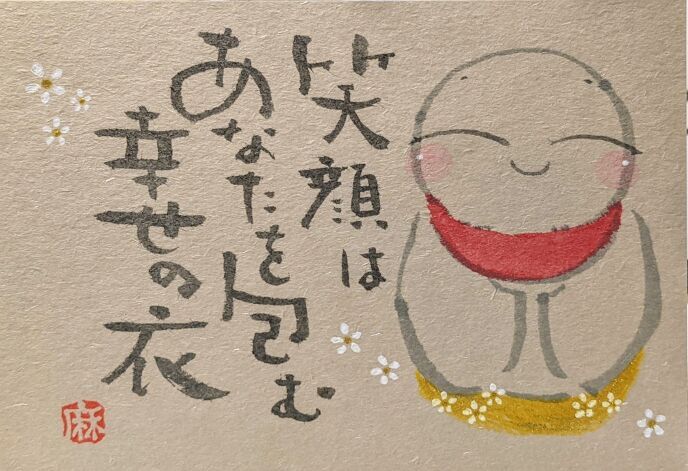 笑顔は
あなたを包む
幸せの衣
麻